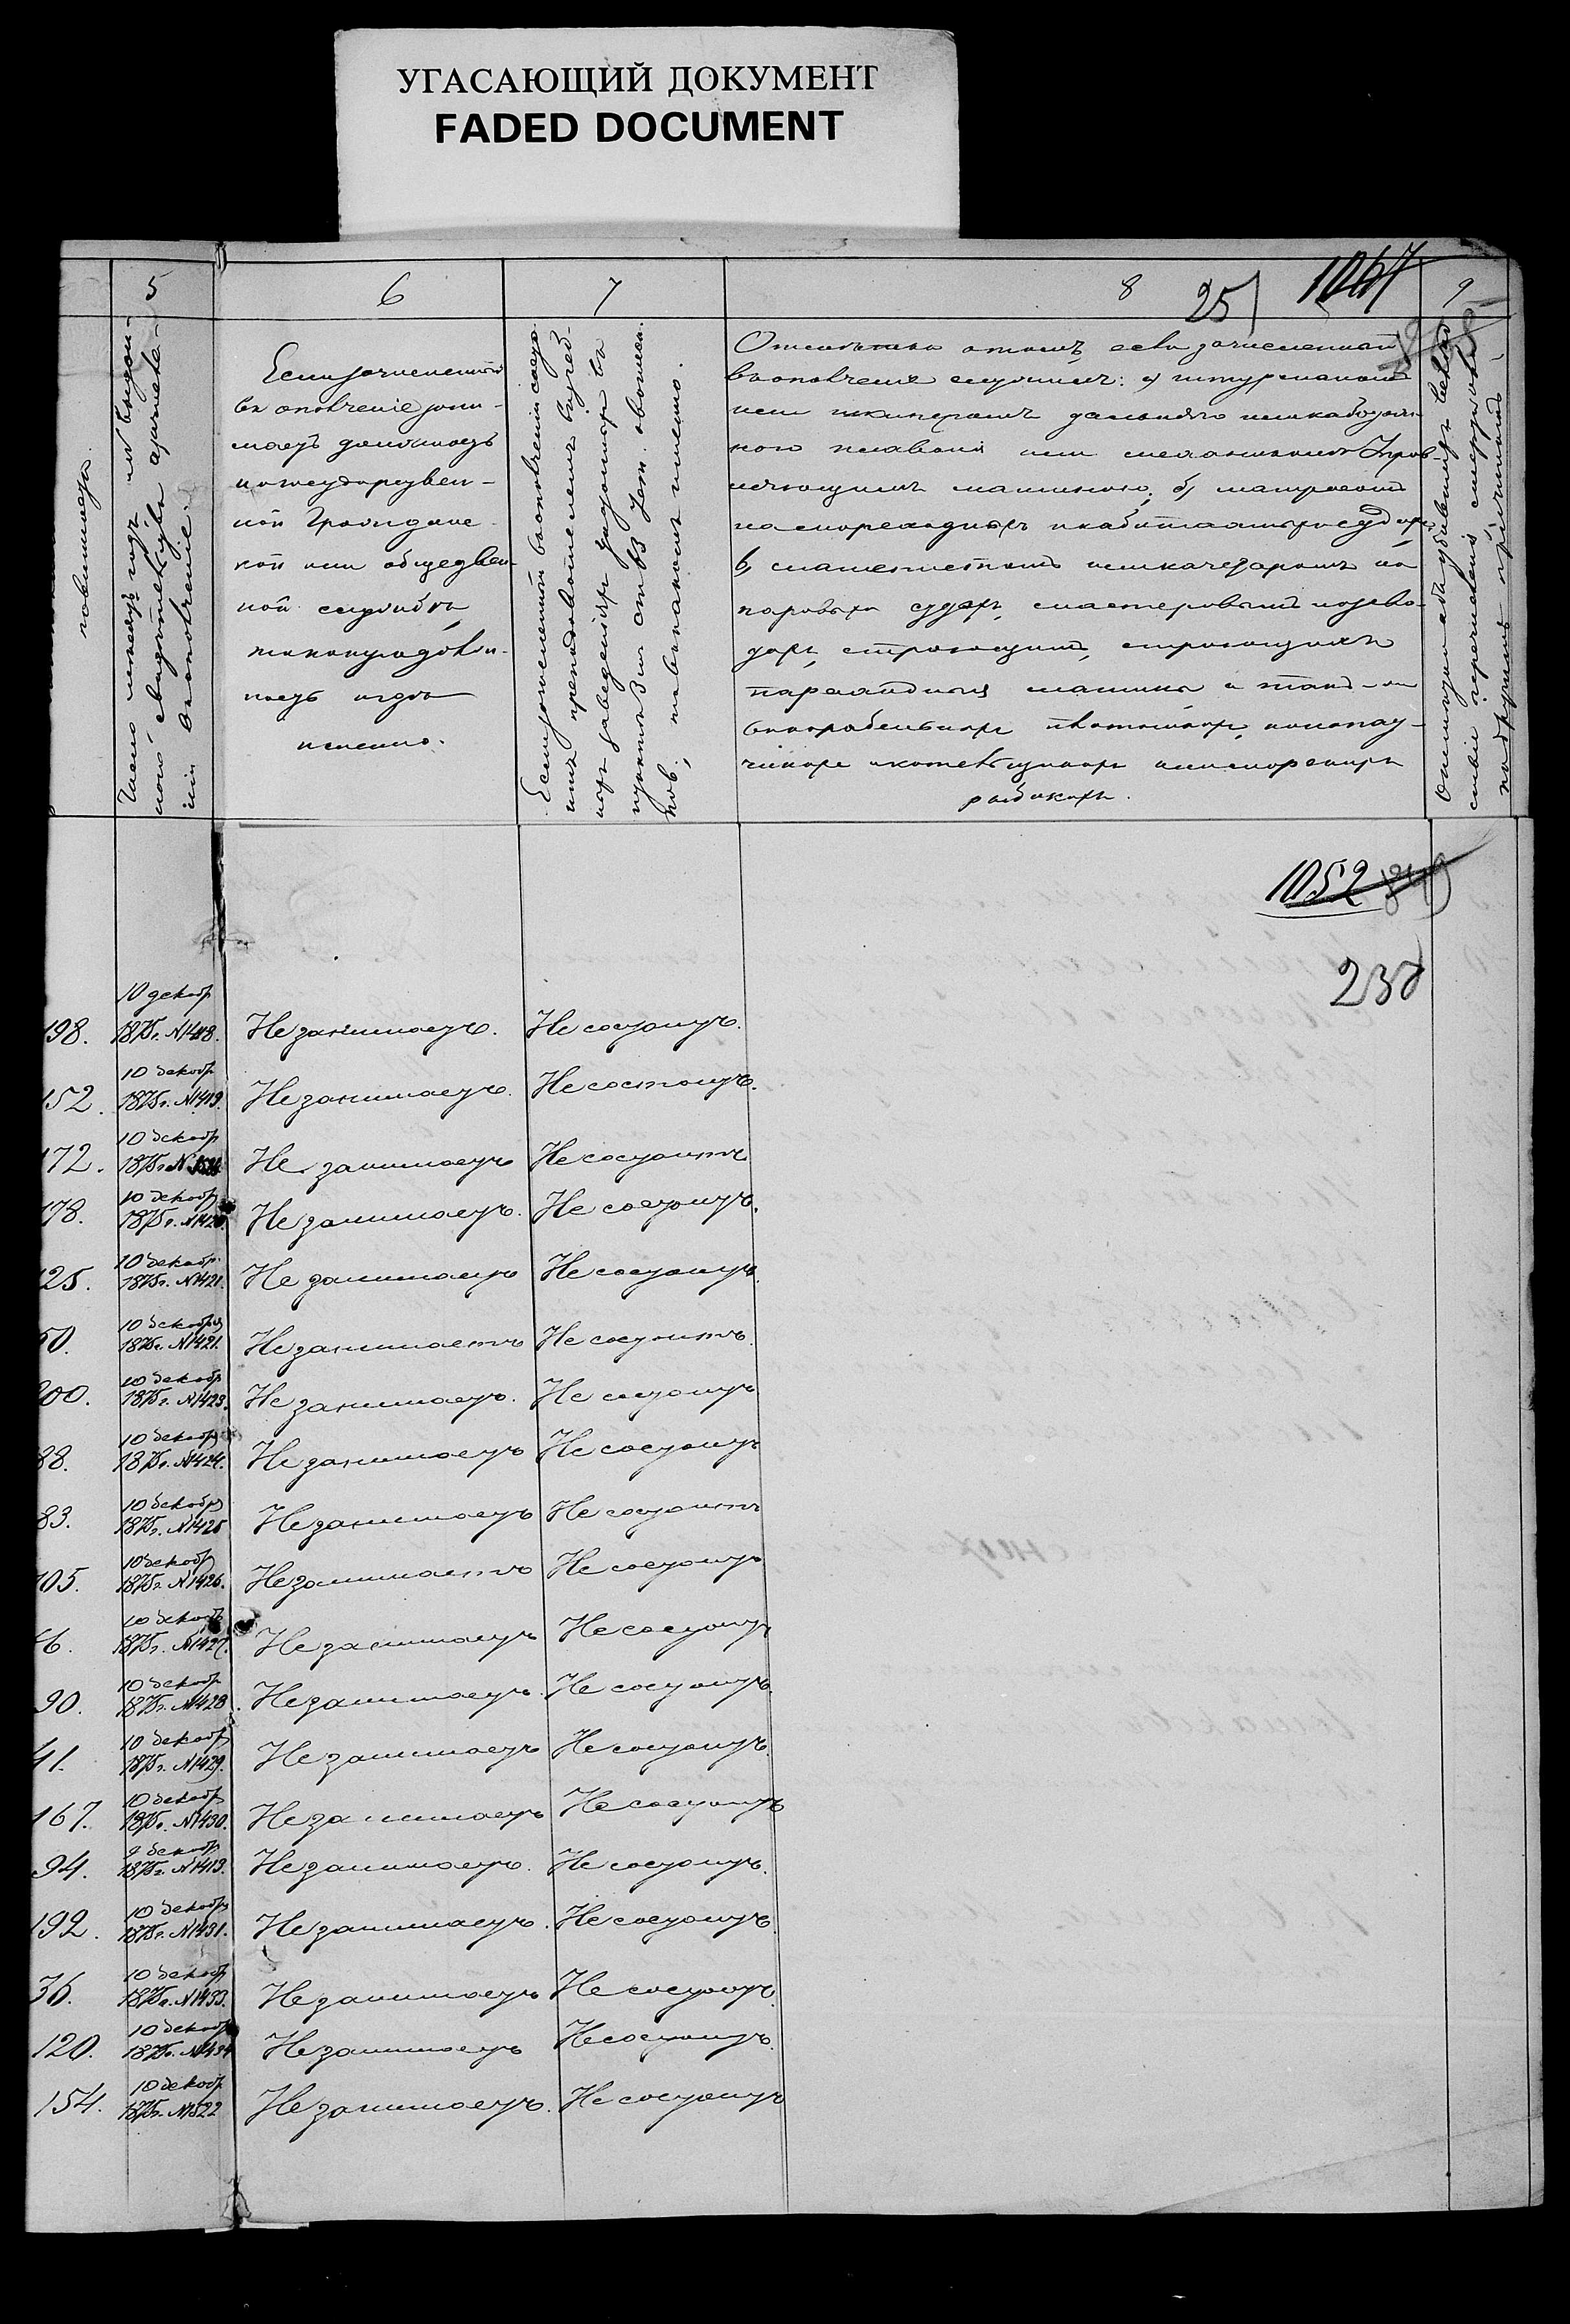 УГАСАЮЩИЙ ДОКУМЕНТ
FADED DOCUMENT
5 6 7 8 9
251 1067
новшиеся.
Число месяцъ годъ и № выдан-
наго свидѣтельства
въ ополченіе.
Если зачисленный
въ ополченіе зани-
маетъ должность
по государствен-
ной граждан-
ской или обществен-
ной службѣ,
то какую должн-
ность и гдѣ
именно.
Если зачисленный въ ополченіе состо-
итъ преподавателемъ въ учеб-
ныхъ заведеніяхъ указанныхъ въ
пунктѣ 3
новъ, то въ какомъ именно.
Отмѣтка о томъ, если зачисленный
въ ополченіе служилъ: а) штурманомъ
или шкиперомъ дальняго или каботаж-
наго плаванія или механикомъ управ-
ляющимъ машиною; б) матросомъ
на мореходныхъ и каботажныхъ судахъ
в) машинистомъ или кочегаромъ на
паровыхъ судахъ, мастеровымъ на заво-
дахъ, строющихъ
пароходныя машины и
въ корабельныхъ плотникахъ, конопат-
чикахъ и котельщикахъ
рыбакахъ.
1052
238
198. 10 декабр 1875г. №1418. Не занимаетъ. Не состоитъ.
152. 10 декабр 1875г. №1419. Не занимаетъ. Не состоитъ.
172. 10 декабр 1875г. № Не занимаетъ Не состоитъ
178. 10 декабр 1875г. №1420. Не занимаетъ. Не состоитъ.
125. 10 декабр. 1875г. №1421. Не занимаетъ Не состоитъ.
50. 10 декабря 1875г. №1421. Не занимаетъ Не состоитъ.
200. 10 декабр 1875г. №1423. Не занимаетъ. Не состоитъ
88. 10 декабр 1875г. №1424. Не занимаетъ Не состоитъ
83. 10 декабр 1875г. №1425 Не занимаетъ Не состоитъ
105. 10 декабр 1875г. №1426. Не занимаетъ Не состоитъ
6. 10 декабр 1875г. №1427. Не занимаетъ Не состоитъ
90. 10 декабр 1875г. №1428. Не занимаетъ. Не состоитъ.
41. 10 декабр 1875г. №1429. Не занимаетъ Не состоитъ.
167. 10 декабр 1875г. №1430. Не занимаетъ Не состоитъ
94. 9 декабр 1875г. №1413. Не занимаетъ. Не состоитъ.
192. 10 декабр 1875г. №1431. Не занимаетъ. Не состоитъ.
36. 10 декабр 1875г. №1433. Не занимаетъ Не состоитъ.
120. 10 декабр 1875г. №1434 Не занимаетъ Не состоитъ.
154. 10 декабр 1875г. №1522 Не занимаетъ. Не состоитъ